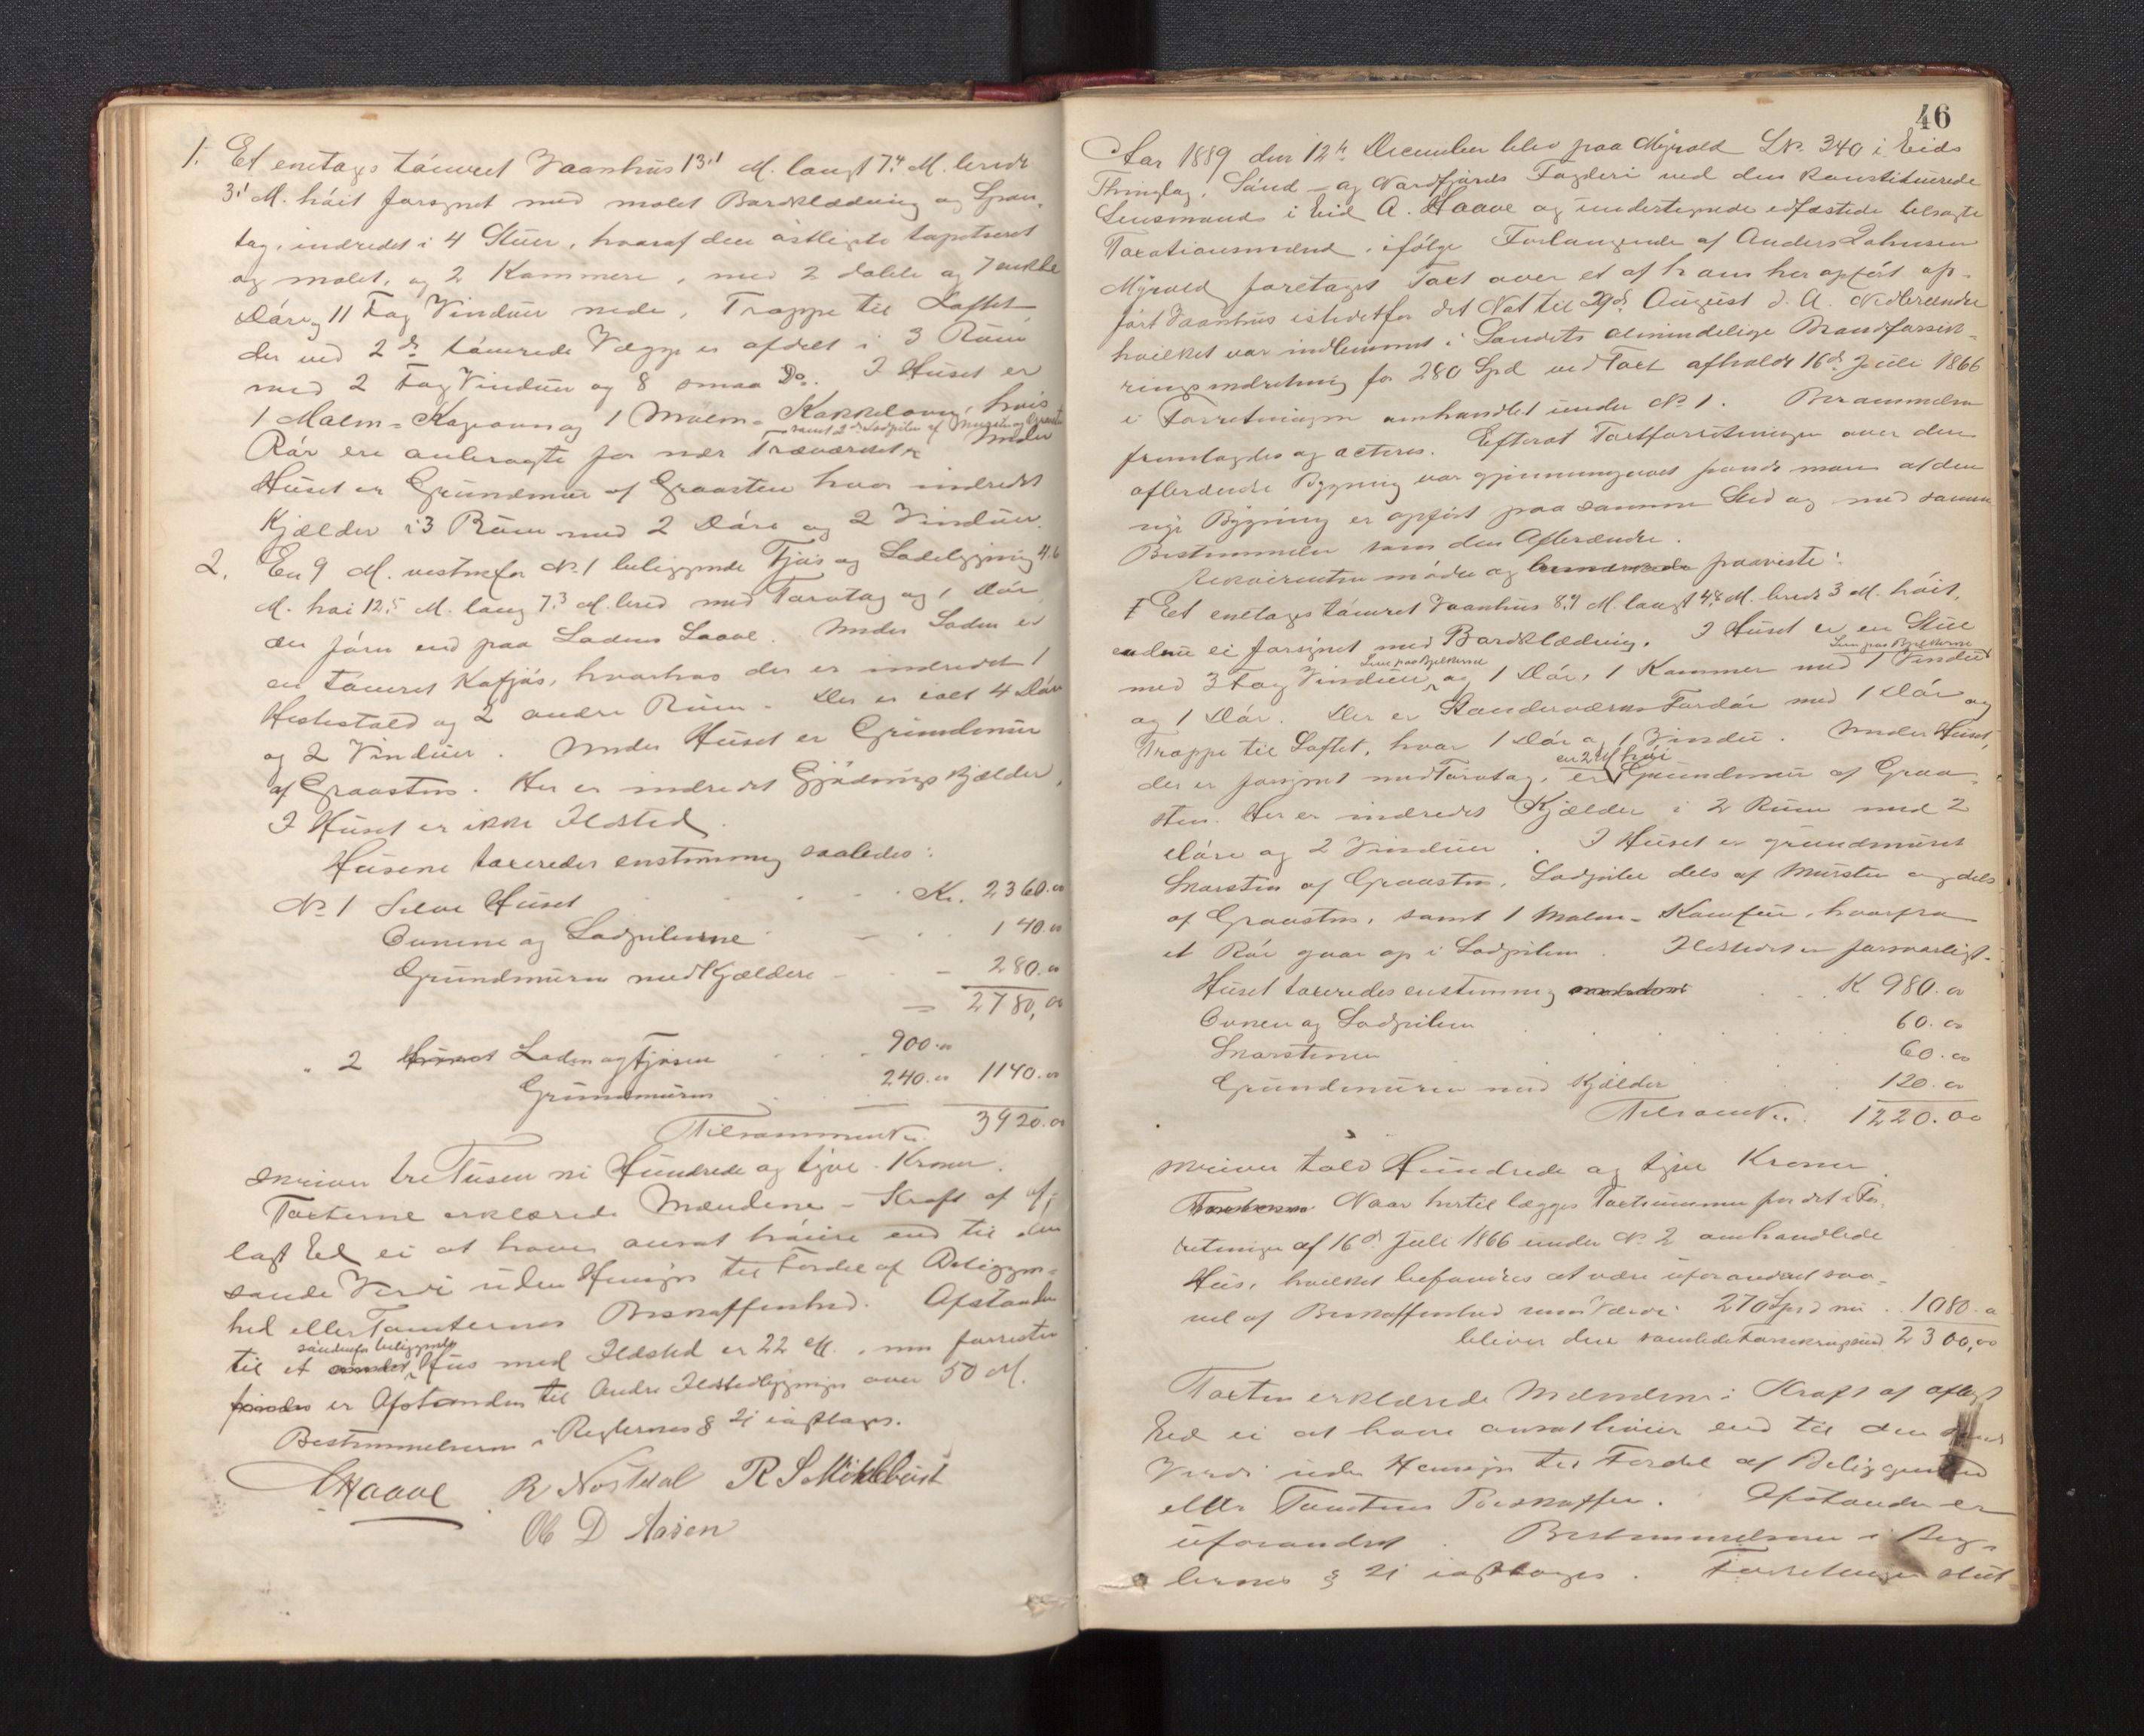 1. Et enetages tømret Vaanhus 13.1 M. langt 7.4 M. bredt
3.1 M. høit forsynet med malet Bordklædning og Spon-
tag, indredet i 4 Stuer, hvoraf den østligste tapetseret
og malet, og 2 Kammere, med 2 dobble og 7 enkle
Døre, 11 Fag Vinduer nede, Trappe til Loftet
der ved 2de tømrede Vægge er afdelt i 3 Rum
med 2 Fag Vinduer og 8 smaa Do. I Huset er
1 Malm-Kogeovn og 1 Malm-Kakkelovn, hvis
samt 2de Ladpiber af Mursten og Graasten
Rør ere anbragte for nær Træværket. Under
Huset er Grundmur af Graasten hvor indredet
Kjælder i 3 Rum med 2 Døre og 2 Vinduer.
2. En 9 M. vestenfor No 1 beliggende Fjøs og Ladebygning 4.6
M. høi 12.5 M. lang 7.3 M. bred med Torvtag og 1 Dør,
der fører ind paa Ladens Laave. Under Laden er
en tømret Kofjøs, hvorhos der er indredet 1
Hestestald og 2 andre Rum. Der er ialt 4 Døre
og 2 Vinduer. Under Huset er Grundmur
af Graasten. Her er indredet Gjødningskjælder,
I Huset er ikke Ildsted.
Husene taxeredes enstemmig saaledes:
No 1 Selve Huset Kr. 2360.00
Ovnene og Ladpiberne 140.00
Grundmuren med Kjældere 280.00
2780,00
" 2 Huset Laden og Fjøsen 900.00
Grundmuren 240.00 1140.00
Tilsammen Kr. 3920.00
skriver tre Tusen ni Hundrede og tyve Kroner.
Taxterne erklærede Mændene i Kraft af af-
lagt Ed ei at have ansat høiere end til den
sande Værdi uden Hensyn til Fordel af Beliggen-
hed eller Tomternes Beskaffenhed. Afstanden
søndenfor beliggende
til et andet Hus med Ildsted er 22 M., men forresten
findes er Afstanden til andre Ildstedbygninger over 50 M.
Bestemmelserne i Reglernes § 21 iagttages.
AHaave R Nosdal R S Mÿklebüst
Ole D Aasen
46
Aar 1889 den 12te December blev paa Myrold LNo. 340 i Eids
Thinglag, Sønd- og Nordfjords Fogderi ved den konstituerede
Lensmand i Eid A. Haave og undertegnede edfæstede tilsagte
Taxationsmænd, ifølge Forlangende af Anders Johnsen
Myrold foretaget Taxt over et af ham her opført op-
ført Vaanhus istedetfor det Nat til 29de August d. A. Nedbrændte
hvilket var indlemmet i Landets almindelige Brandforsik-
ringsindretning for 280 Spd ved Taxt afholdt 16de Juli 1866
i Forretningen omhandlet under No 1. Berammelsen
fremlagdes og acteres. Efterat Taxtforretningen over den
afbrændte Bygning var gjennemgaaet fandt man at den
nye Bygning er opført paa samme Sted og med samme
Bestemmelse som den Afbrændte.
Rekvirenten mødte og bemærkede paaviste:
1 Eet enetages tømret Vaanhus 8.4 M. langt 4.8 M. bredt 3 M. høit,
endnu ei forsynet med Bordklædning. I Huset er en Stue
med 3 Fag Vinduer og 1 Dør, 1 Kammer med 1 Vindue
og 1 Dør. Der er Standerværks Fordør med 1 Dør og
Trappe til Loftet, hvor 1 Dør og 1 Vindue. Under Huset,
en 2 M høi
der er forsynet med Torvtag, er Grundmur af Graa-
sten. Her er indredet Kjælder i 2 Rum med 2
Døre og 2 Vinduer. I Huset er grundmuret
Skorsten af Graasten, Ladpibe dels af Mursten og dels
af Graasten, samt 1 Malm-Komfur, hvorfra
et Rør gaar op i Ladpiben. Ildstedet er forsvarligt.
Huset taxeredes enstemmig K 980.00
Ovnen og Ladpiben 60.00
Skorstenen 60.00
Grundmuren med Kjælder 120.00
Tilsam Kr. 1220.00
skriver tolv Hundrede og tyve Kroner.
Naar hertil lægges Taxtsummen for det i For-
retningen af 16de Juli 1866 under No 2 omhandlede
Hus, hvilket befandtes at være uforandret saa-
vel af Beskaffenhed som Værdi 270 Spd nu 1080.00
bliver den samlede 2300,00
Taxten erklærede Mændene i Kraft af aflagt
Ed ei at have ansat høier end til den sande
Værdi uden Hensyn til Fordel af Beliggenhed
eller Tomtens Beskaffen. Afstanden er
uforandret. Bestemmelserne i Reg-
lernes § 21 iagttages. Forretningen slut